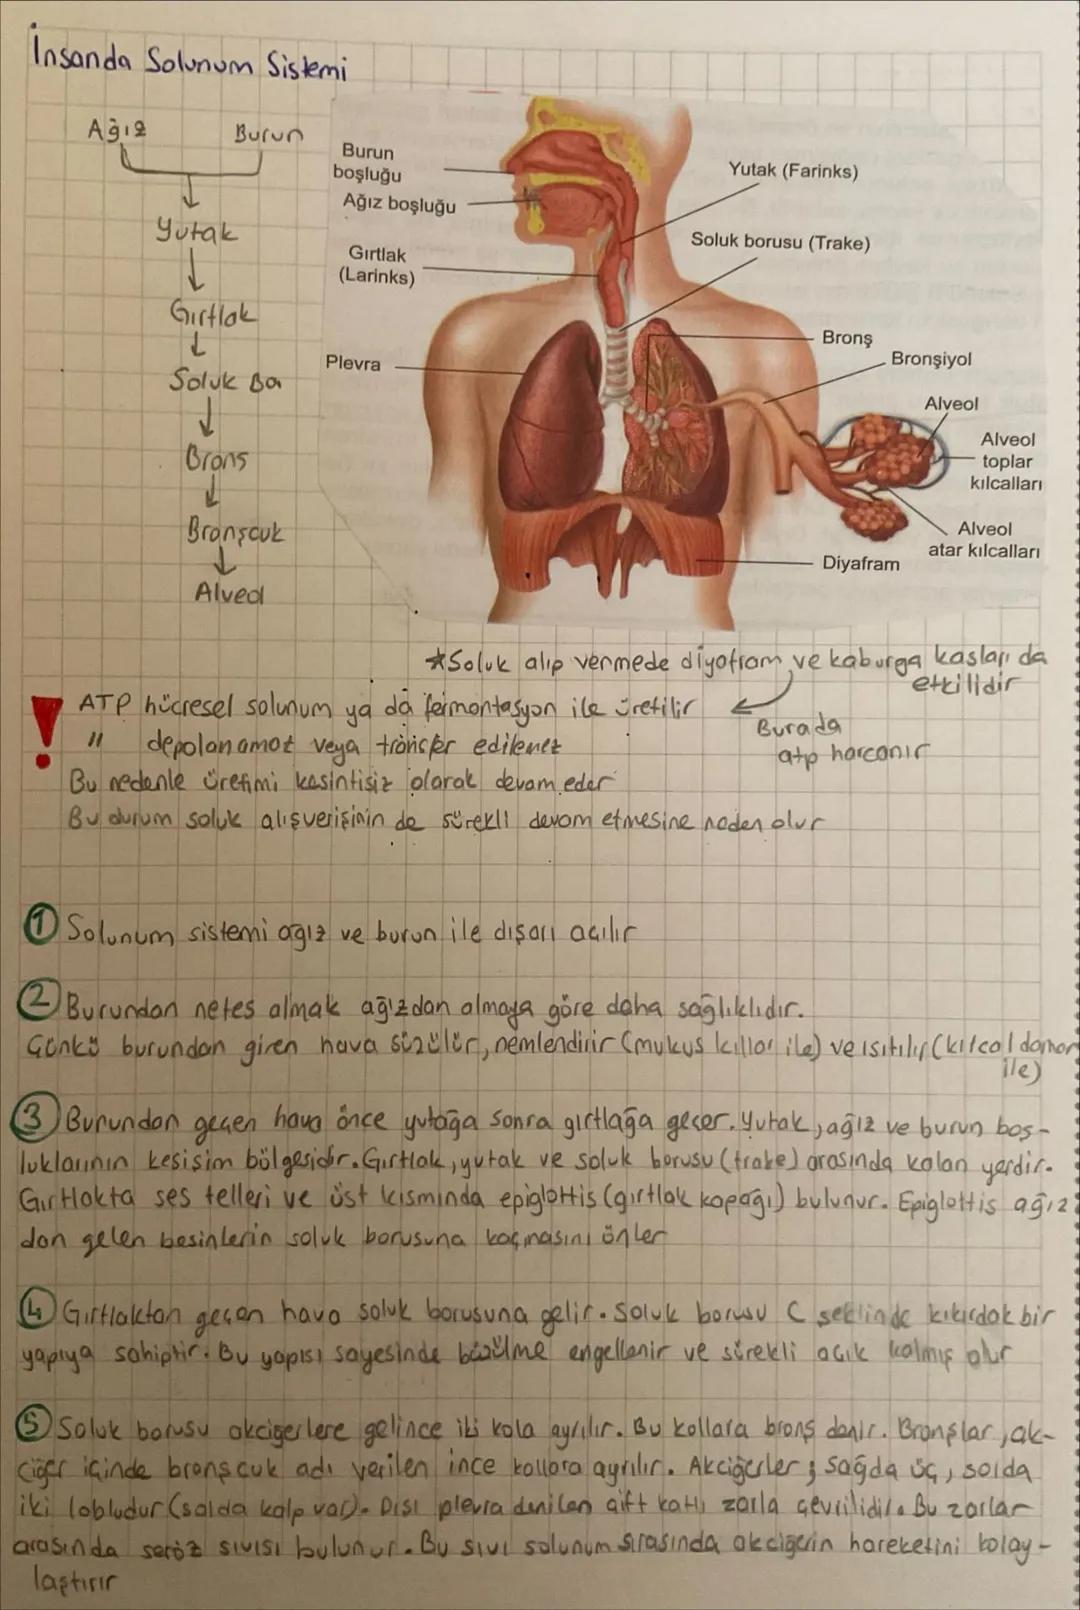 İnsanda Solunum Sistemi
Ağız Burun
Yutak
Gırtlak
Soluk Bo
Bronş
Bronşcuk
Alveol
Burun
boşluğu
Ağız boşluğu
Gırtlak
(Larinks)
Plevra
Yutak (Farinks)
Soluk borusu (Trake)
Bronş
Bronşiyol
Alveol
Alveol
toplar
kılcalları
Alveol
atar kılcalları
Diyafram
*Soluk alıp vermede diyafram ve kaburga kasları da
etkilidir
Burada
atp harcanır
! ATP hücresel solunum ya da fermantasyon ile üretilir
" depolanamaz veya transfer edilemez
Bu nedenle üretimi kesintisiz olarak devam eder
Bu durum soluk alışverişinin de sürekli devam etmesine neden olur
1 Solunum sistemi ağız ve burun ile dışarı açılır
2 Burundan nefes almak ağızdan almaya göre daha sağlıklıdır.
Çünkü burundan giren hava süzülür, nemlendirir (mukus kıllar ile) ve ısıtılır (kılcal damar
ile)
3 Burundan geçen hava önce yutağa sonra gırtlağa geçer. Yutak, ağız ve burun boş-
luklarının kesişim bölgesidir. Gırtlak, yutak ve soluk borusu (trake) arasında kalan yerdir.
Gırtlakta ses telleri ve üst kısmında epiglottis (gırtlak kapağı) bulunur. Epiglottis ağız
dan gelen besinlerin soluk borusuna kaçmasını önler
4 Gırtlaktan geçen hava soluk borusuna gelir. Soluk borusu C şeklinde kıkırdak bir
yapıya sahiptir. Bu yapısı sayesinde büzülme engellenir ve sürekli açık kalmış olur
5 Soluk borusu akciğerlere gelince iki kola ayrılır. Bu kollara bronş denir. Bronşlar, ak-
ciğer içinde bronşcuk adı verilen ince kollara ayrılır. Akciğerler; sağda üç, solda
iki lobludur (solda kalp var). Dışı plevra denilen çift katlı zarla çevrilidir. Bu zarlar
arasında seröz sıvısı bulunur. Bu sıvı solunum sırasında akciğerin hareketini kolay-
laştırır